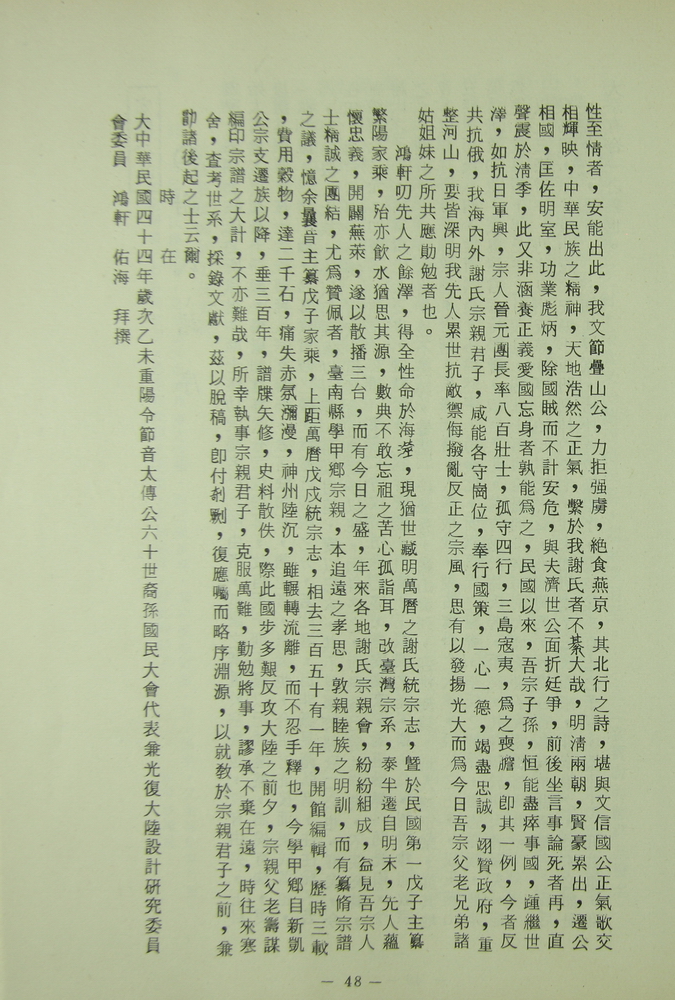 性至情者，安能出此，我文節疊山公，力拒强虜，絶食燕京，其北行之詩，堪與文信國公正氣歌交
相輝映，中華民族之精神，天地浩然之正氣，繫於我謝氏者不綦大哉，明清兩朝，賢豪累出，遷公
相國，匡佐明室，功業彪炳，除國賊而不計安危，與夫濟世公面折廷爭，前後坐言事論死者再，直
聲震於清季，此又非涵養正義愛國忘身者孰能爲之，民國以來，吾宗子孫，恒能盡瘁事國，踵繼世
澤，如抗日軍興，宗人晉元團長率八百壯士，孤守四行，三島寇夷，爲之喪膽，卽其一例，今者反
共抗俄，我海內外謝氏宗親君子，咸能各守崗位，奉行國策，一心一德，竭盡忠誠，翊贊政府，重
整河山，要皆深明我先人累世抗敵禦侮撥亂反正之宗風，思有以發揚光大而爲今日吾宗父老兄弟諸
姑姐妹之所共應勛勉者也。
鴻軒叨先人之餘澤，得全性命於海澨，現猶世藏明萬曆之謝氏統宗志，曁於民國第一戊子主纂
繁陽家乘，殆亦飲水猶思其源，數典不敢忘祖之苦心孤詣耳，改臺灣宗系，泰半遷自明末，先人蘊
懷忠義，開闢蕪萊，遂以散播三台，而有今日之盛，年來各地謝氏宗親會，紛紛組成，益見吾宗人
士精誠之團結，尤爲贊佩者，臺南縣學甲鄉宗親，本追遠之孝思，敦親睦族之明訓，而有纂脩宗譜
之議，憶余曩昔主纂戊子家乘，上距萬曆戊戍統宗志，相去三百五十有一年，開館編輯，歷時三載
，費用穀物，達二千石，痛失赤氛瀰漫，神州陸沉，雖輾轉流離，而不忍手釋也，今學甲鄉自新凱
公宗支遷族以降，垂三百年，譜牒矢修，史料散佚，際此國步多艱反攻大陸之前夕，宗親父老籌謀
編印宗譜之大計，不亦難哉，所幸執事宗親君子，克服萬難，勤勉將事，謬承不棄在遠，時往來寒
舍，査考世系，採錄文獻，茲以脫稿，卽付剞劂，復應囑而略序淵源，以就教於宗親君子之前，兼
勖諸後起之士云爾。
時　在
大中華民國四十四年歲次乙未重陽令節音太傅公六十世裔孫國民大會代表兼光復大陸設計研究委員
會委員　鴻軒　佑海　拜撰
— 48 —